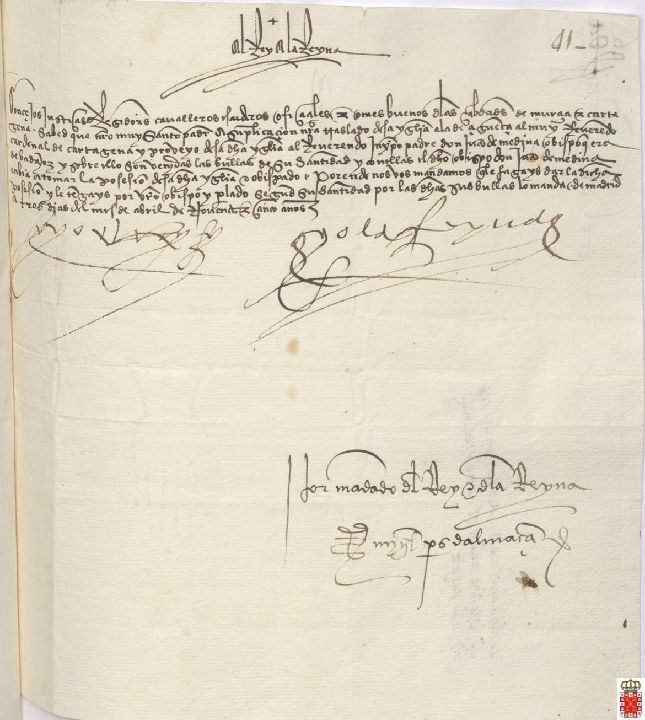 El Rey e la Reyna
41
Conçejos justiçias Regidores cavalleros escuderos ofiçiales e omes buenos delas çibdades de murçia e carta
gena. Sabed que nro muy Santo padre A suplicaçion nra traslado desa yglia ala de agueta al muy Reverendo
cardenal de cartagena y proveyo desa dha yglia al Reverendo in xpo padre don juo de medina obispo que era
de badajoz y sobrello son venydas las bullas de su Santidad y con ellas el dho obispo don juo de medina
enbia a tomar la posesio desa dha yglia e obispado e Porende nos vos mandamos que le fagays dar la dicha
posesio y le tengays por vro obispo y plado segund su Santidad por las dhas sus bullas lo manda. de madrid
a tres dias del mes de abril de noventa e çinco años
yo el Rey
yo la Reyna
Por mãdado del Rey e dela Reyna
ps dalmaçan